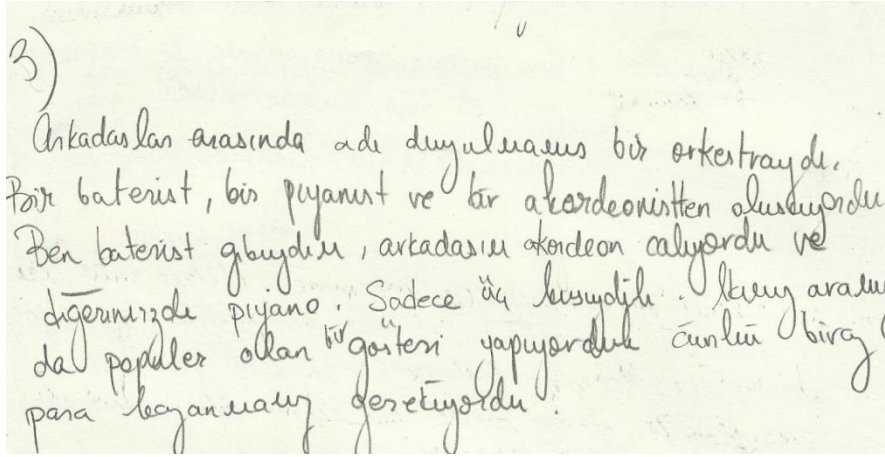 3)
Arkadaslar arasında adı duyulmamıs bir orkestraydı.
Bir baterist, bir piyanist ve bir akordeonistten olusuyordu
Ben baterist gibiydim, arkadasım akordeon calıyordu ve
diğerimizde piyano. Sadece üç kisiydik.
da popüler olan bir gösteri yapıyorduk cünkü biraz
para kazanmamız gerekiyordu.